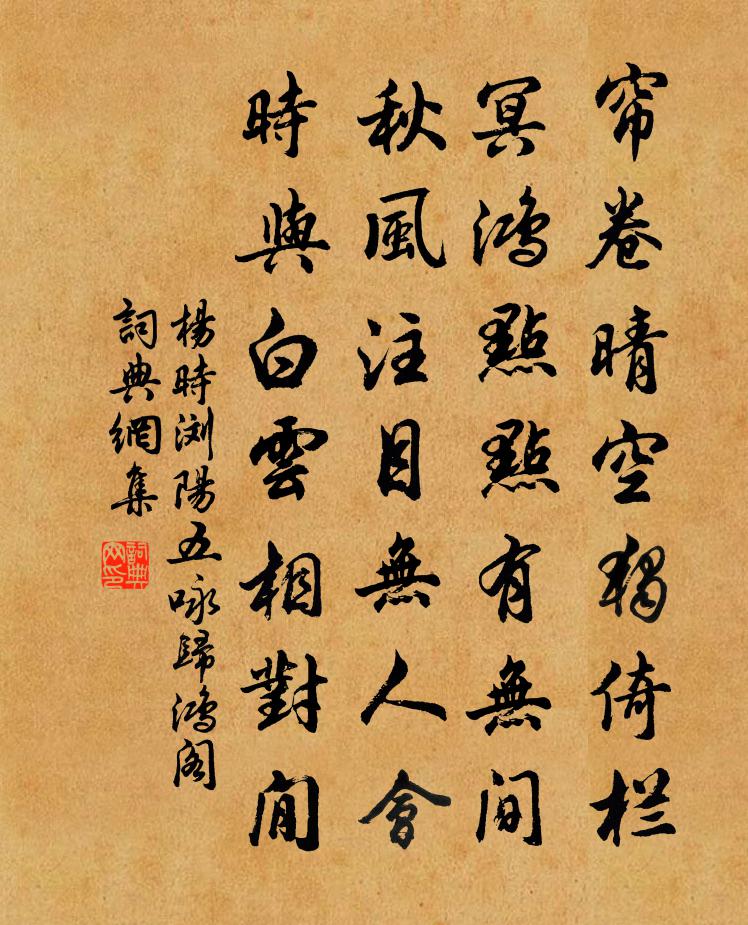 帘卷晴空獨倚栏
冥鴻點點有無間
秋風注目無人會
時與白雲相對閒
楊時浏陽五咏歸鴻閣
詞典網集
詞典
网印